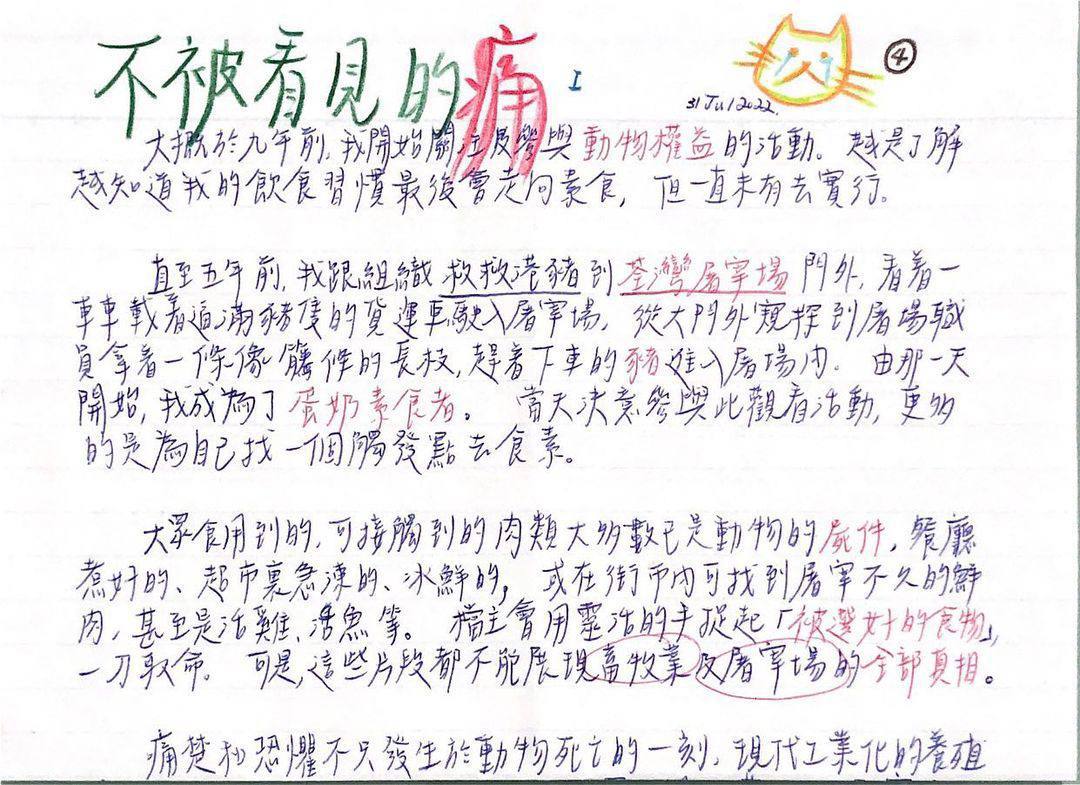 不被看見的痛 I
④
31 Jul 2022
大概於九年前,我開始關注及參與動物權益的活動。越是了解
越知道我的飲食習慣最後會走向素食,但一直未有去實行。
直至五年前,我跟組織救救港豬到荃灣屠宰場門外,看着一
車車載着逼滿豬隻的貨運車駛入屠宰場,從大門外窺探到屠場職
員拿着一條像 條的長枝,趕着下車的豬進入屠場內.由那一天
開始,我成為了蛋奶素食者。當天決意參與此觀看活動,更多
的是為自己找一個觸發點去食素。
大眾食用到的,可接觸到的肉類大多數已是動物的屍件,餐廳
煮好的、超市裏急凍的、冰鮮的,或在街市內可找到屠宰不久的鮮
肉,甚至是活雞、活魚等。檔主會用靈活的手捉起「被選好的食物」,
一刀取命。可是,這些片段都不能展現畜牧業及屠宰場的全部真相。
痛楚和恐懼不只發生於動物死亡的一刻,現代工業化的養殖